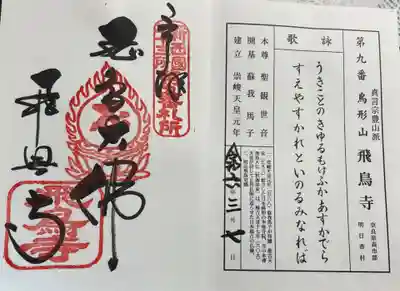 真言宗豊山派
第九番 鳥形山 飛鳥寺
奈良県高市郡
明日香村
詠歌
うきことのきゆるもけふかあすかでら
すえやすかれといのるみなれば
本尊 聖観世音
開基 蘇我馬子
建立 崇峻天皇元年
令六 三月七日
奉拝
飛鳥大佛
飛鳥寺
飛鳥寺